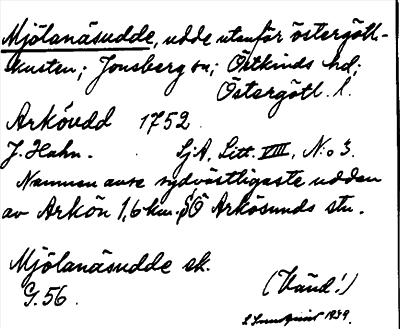 Mjölanäsudde, udde utanför östergötl.-
kusten; Jonsberg sn; Östkinds hd;
Östergötl. l.
Arköudd 1752.
J. Hahn. SjA, Litt. VIII, N:o 3.
Namnen avse sydvästligaste udden
av Arkön 1,6 km. SÖ Arkösunds stn.
Mjölanäsudde sk.
G. 56.
(Vänd!)
1939.